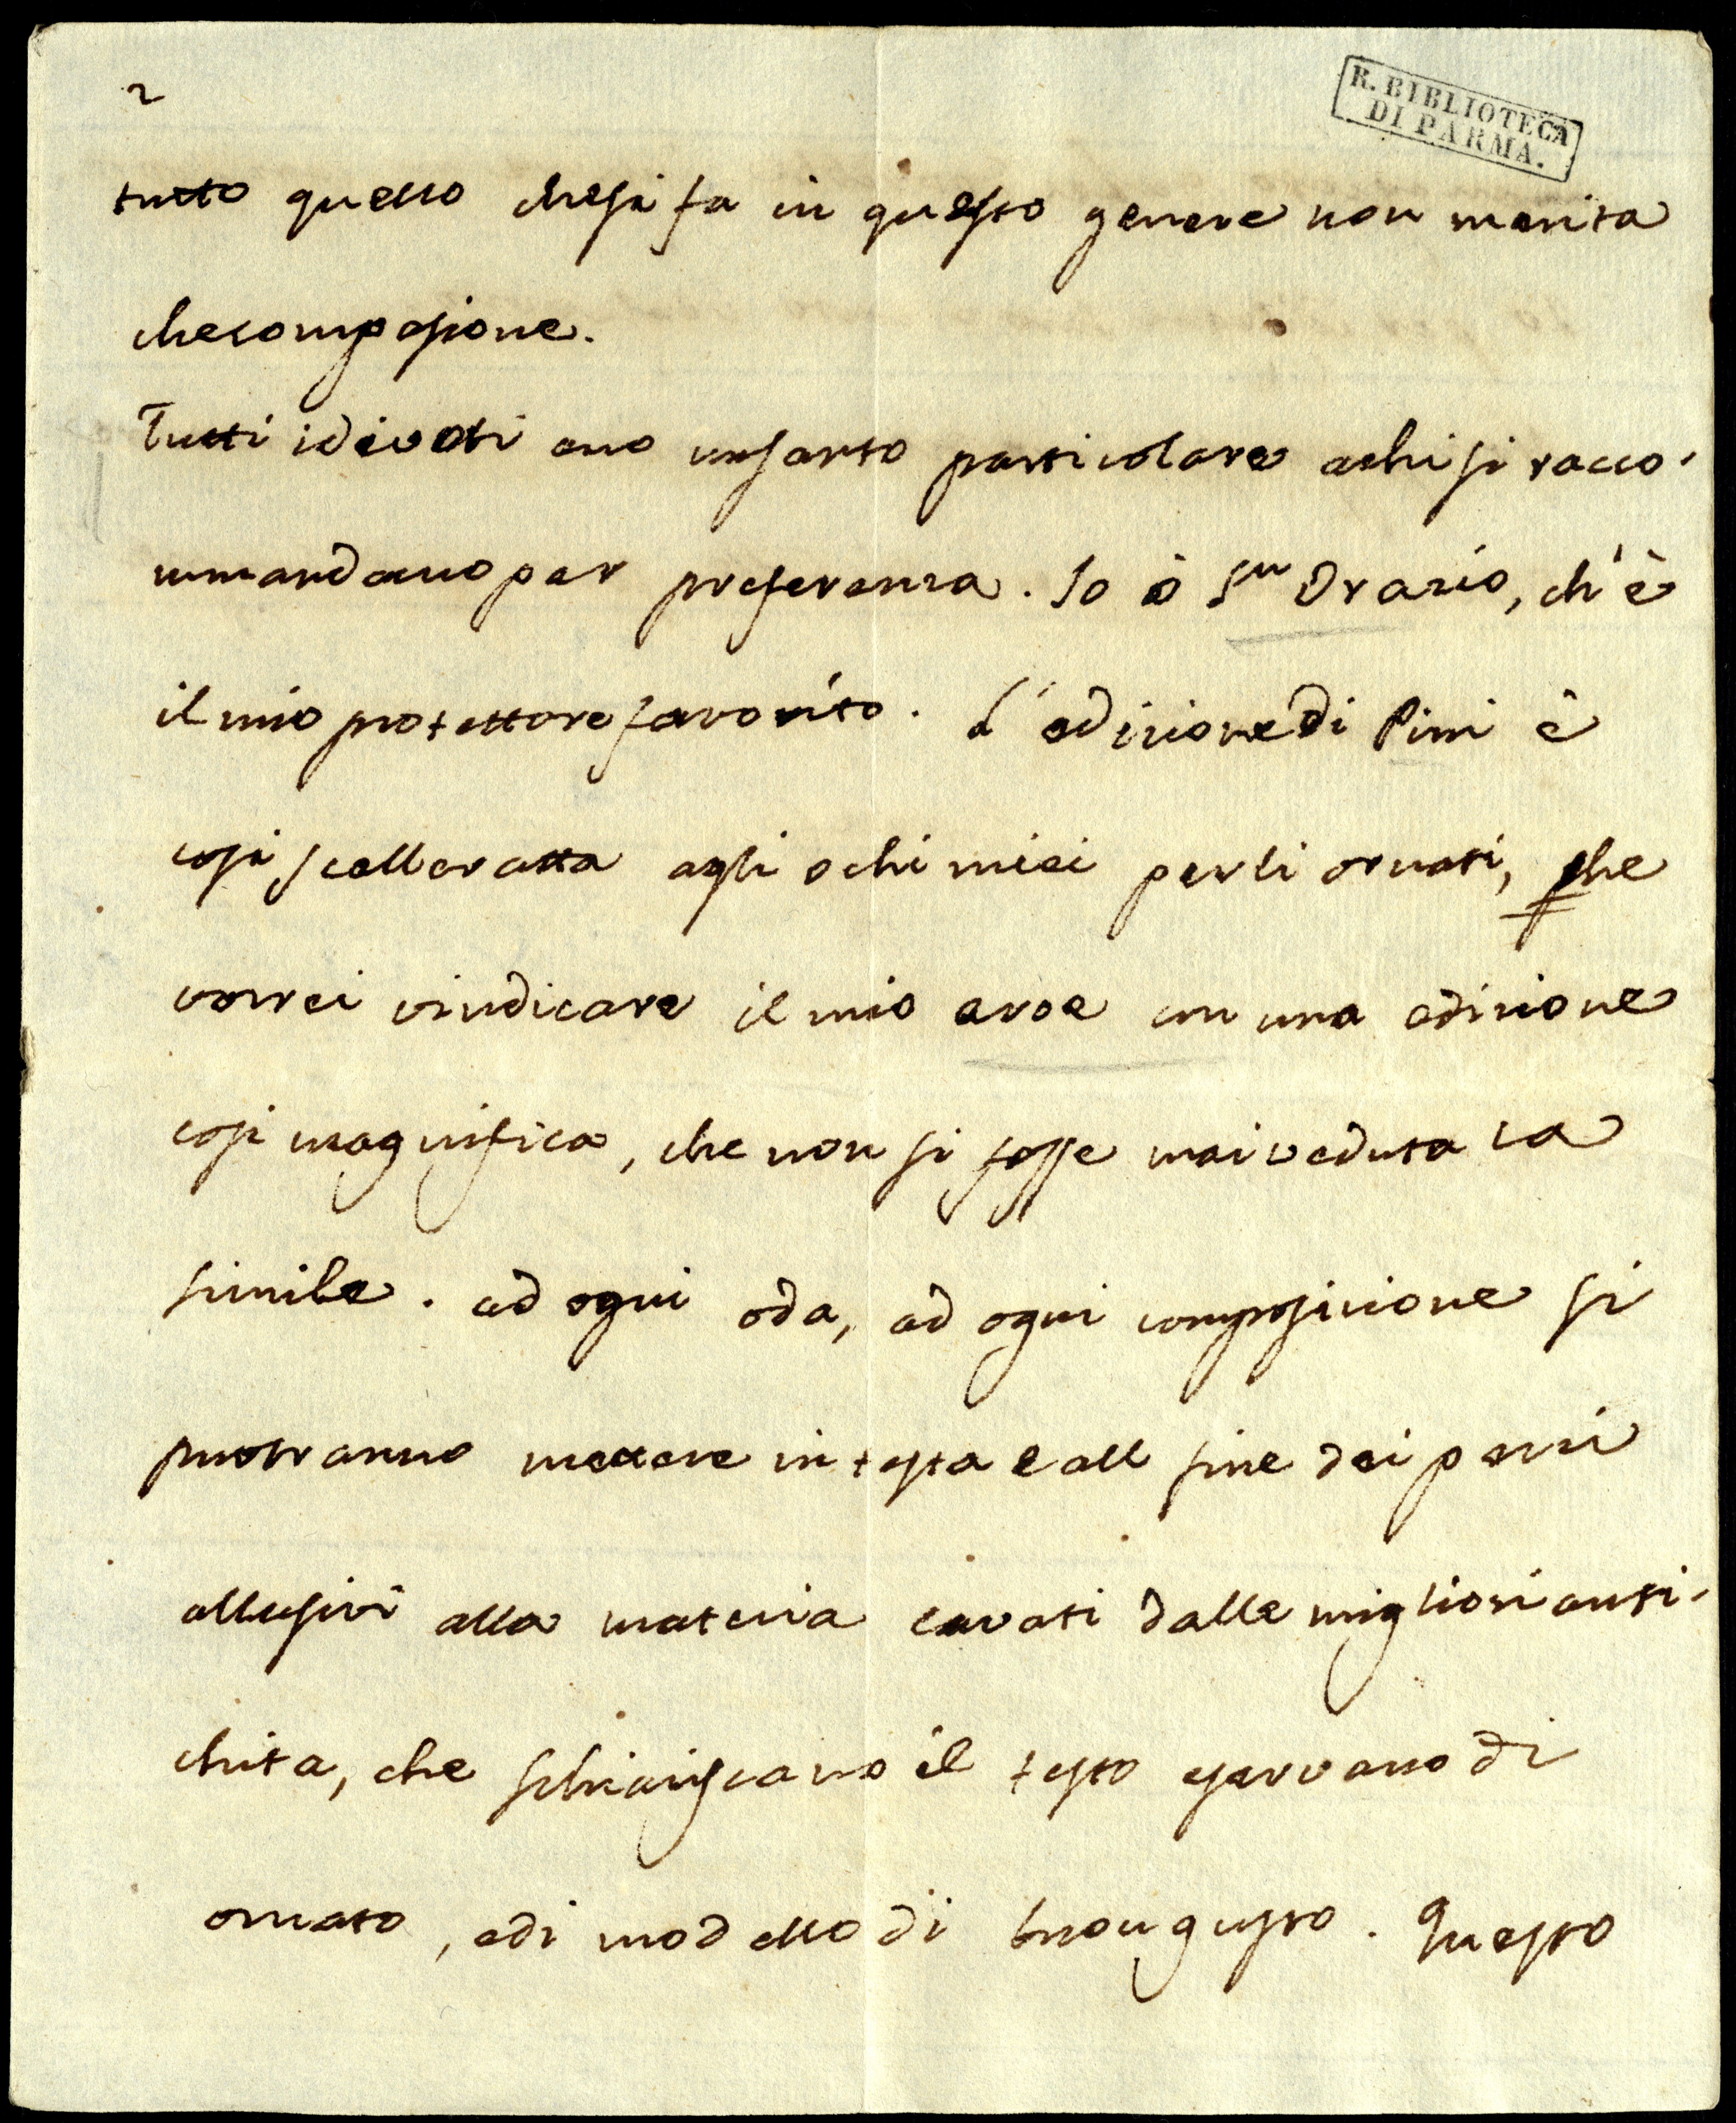 2
R. BIBLIOTECA
DI PARMA.
tutto quello che si fa in questo genere non merita
che compasione.
Tutti i divoti ano un santo particolare a chi si racco-
mmandano per preferenza. Io ò S.n Orazio, ch'è
il mio protettore favorito. L'edizione di Pini è
cosi scelleratta agli ochi miei per li ornati, che
vorrei vindicare il mio eroe con una edizione
cosi magnifica, che non si fosse mai veduta la
simile. ad ogni oda, ad ogni composizione si
puotranno mettere in testa e all fine dei pezzi
allusivi alla materia cavati dalle migliori anti-
chita, che schiariscano il testo e servano di
ornato, e di modello di buon gusto. Questo